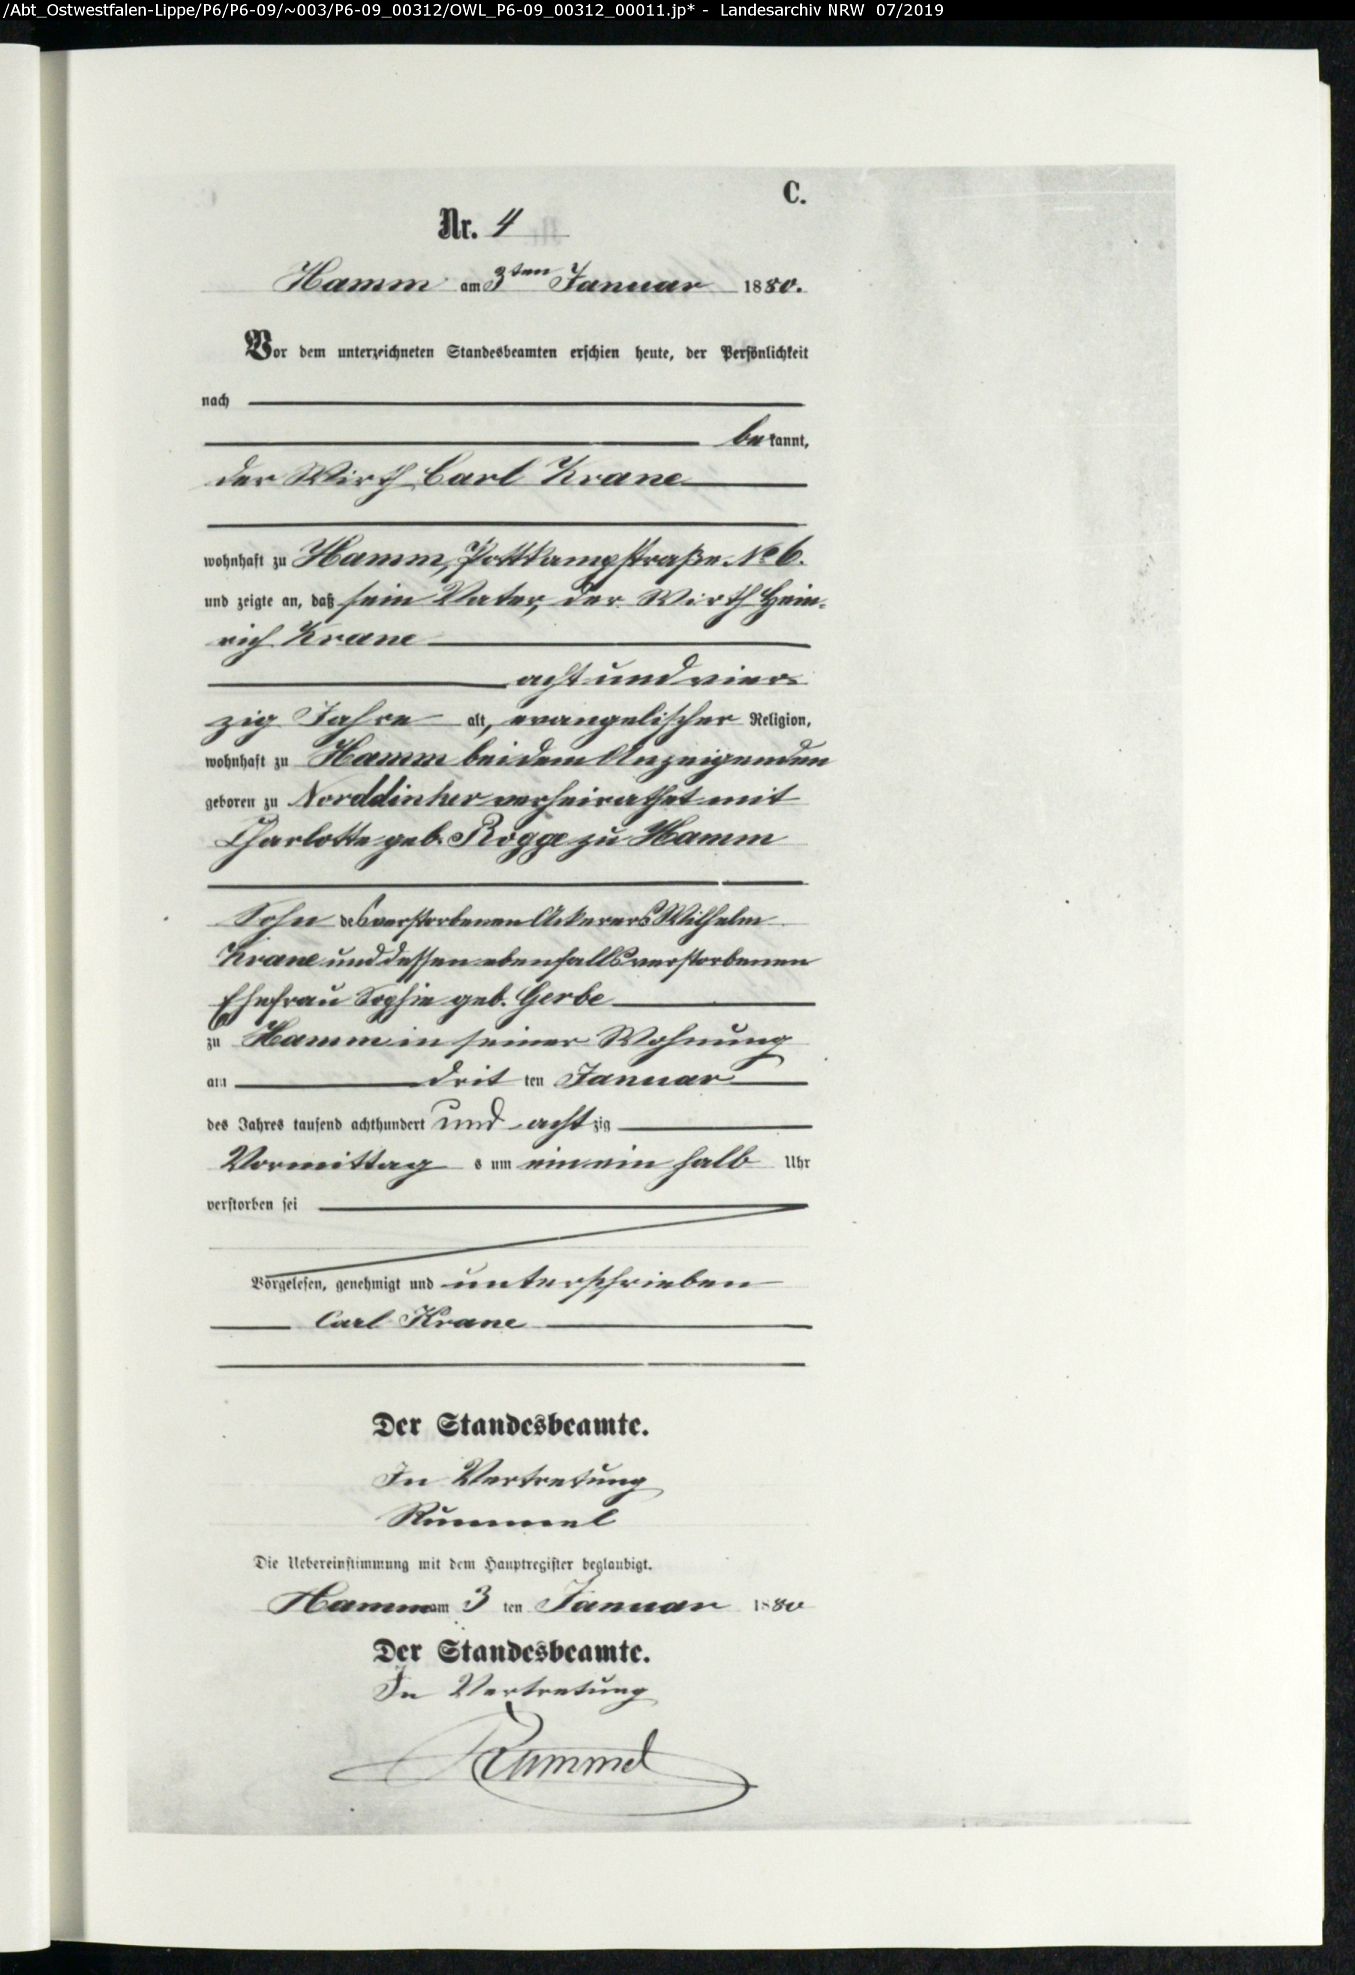 /Abt_Ostwestfalen-Lippe/P6/P6-09/~003/P6-09_00312/OWL_P6-09_00312_00011.jp* - Landesarchiv NRW 07/2019
C.
Nr. 4
Hamm am 3ten Januar 1880.
Vor dem unterzeichneten Standesbeamten erschien heute, der Persönlichkeit
nach
bekannt,
der Wirth Carl Krane
wohnhaft zu Hamm, Pottkampstraße No 6.
und zeigte an, daß sein Vater, der Wirth Hein-
rich Krane
acht und vier-
zig Jahre alt, evangelischer Religion,
wohnhaft zu Hamm bei dem Anzeigenden
geboren zu Norddinker verheirathet mit
Charlotte geb. Rogge zu Hamm
Sohn des verstorbenen Ackerers Wilhelm
Krane und dessen ebenfalls verstorbenen
Ehefrau Sophie geb. Gerbe
zu Hamm in seiner Wohnung
am dritten Januar
des Jahres tausend achthundert und achtzig
Vormittags um ein ein halb Uhr
verstorben sei
Vorgelesen, genehmigt und unterschrieben
Carl Krane
Der Standesbeamte.
In Vertretung
Rummel
Die Uebereinstimmung mit dem Hauptregister beglaubigt.
Hamm am 3ten Januar 1880
Der Standesbeamte.
In Vertretung
Rummel